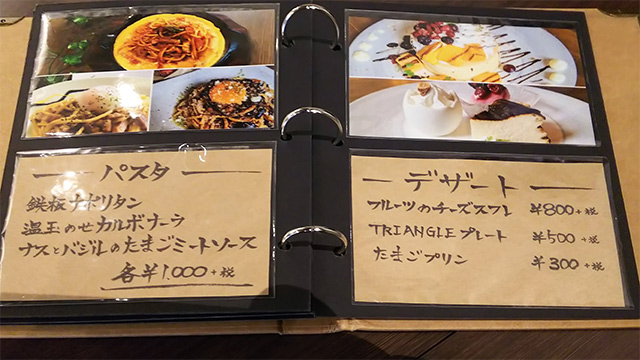 パスタ
鉄板ナポリタン
温玉のせカルボナーラ
ナスとバジルのたまごミートソース
各¥1,000+税
デザート
フルーツのチーズスフレ ¥800+税
TRIANGLEプレート ¥500+税
たまごプリン ¥300+税